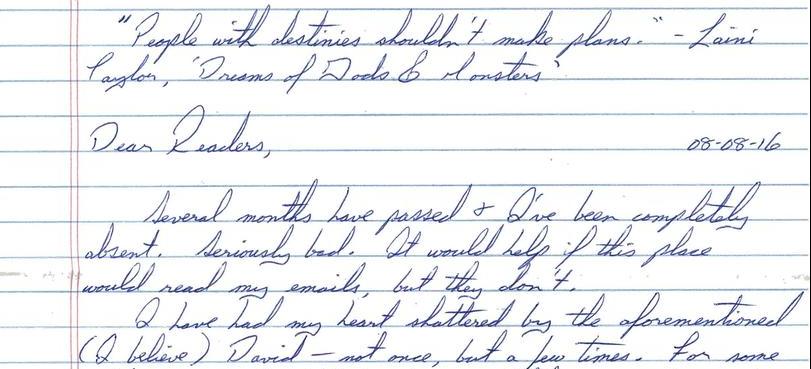 "People with destinies shouldn't make plans." - Laini
Taylor, 'Dreams of Gods & Monsters'
Dear Readers,
08-08-16
Several months have passed & I've been completely
absent. Seriously bad. It would help if this place
would read my emails, but they don't.
I have had my heart shattered by the aforementioned
(I believe) David - not once, but a few times. For some